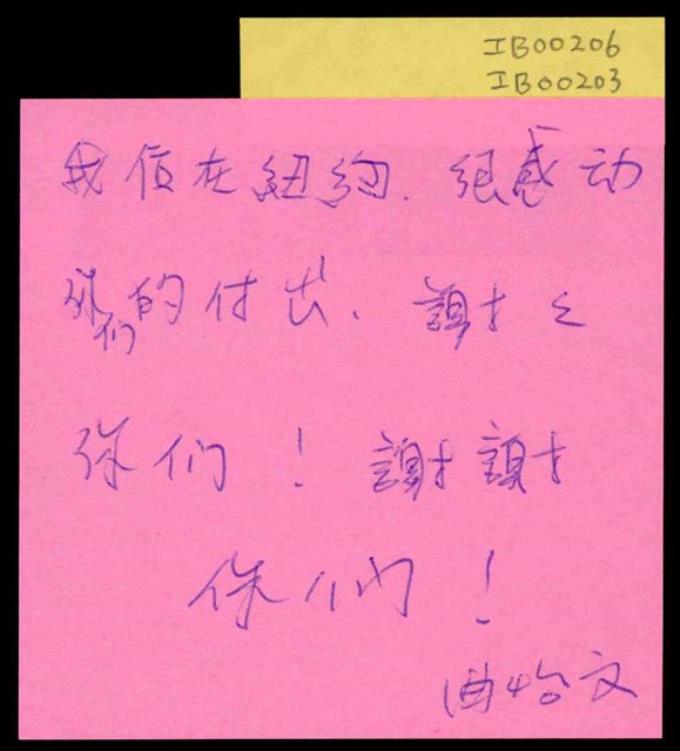 IB00206
IB00203
我住在紐約.很感动
你们的付出、謝々
你们!謝謝
你们!
文